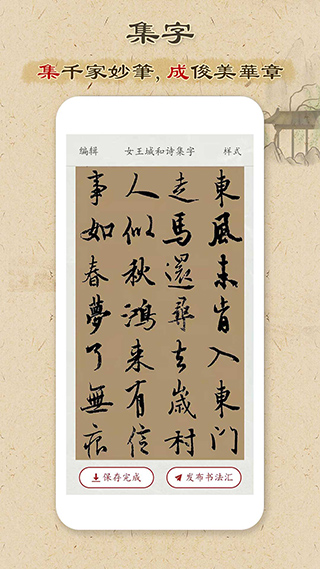 集字
集千家妙筆,成俊美華章
编辑 女王城和诗集字 样式
東風未肯入東門
走馬還尋去歲村
人似秋鴻來有信
事如春夢了無痕
保存完成 发布书法汇